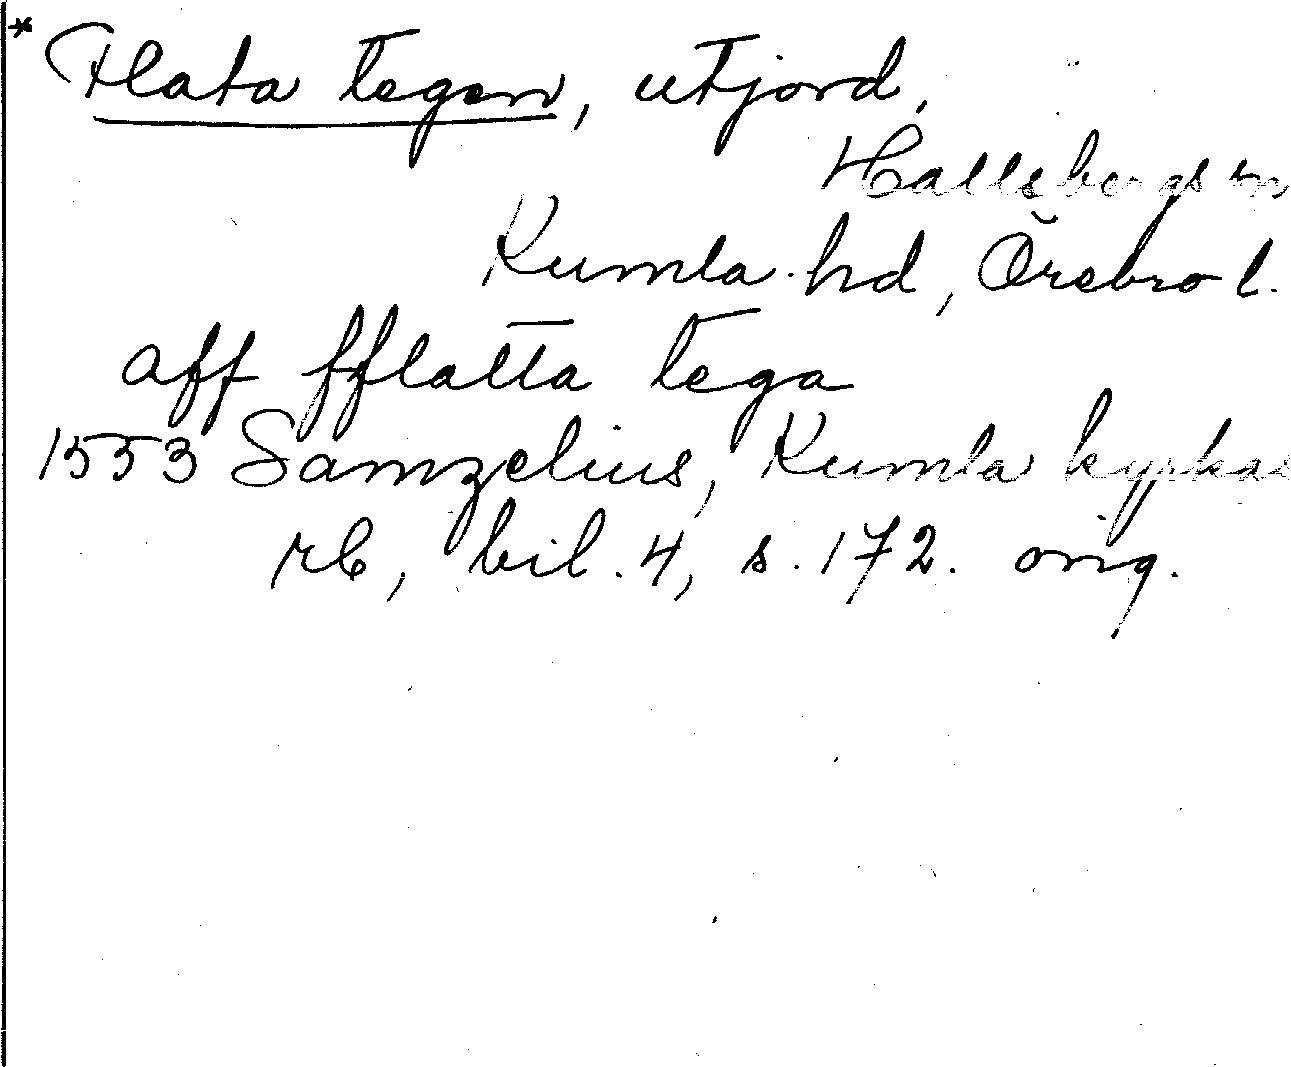 * Flata tegen, utjord,
Hallsbergs sn,
Kumla hd, Örebro l.
aff fflatta tega
1553 Samzelius, Kumla kyrkas
rb, bil. 4, s. 172. orig.